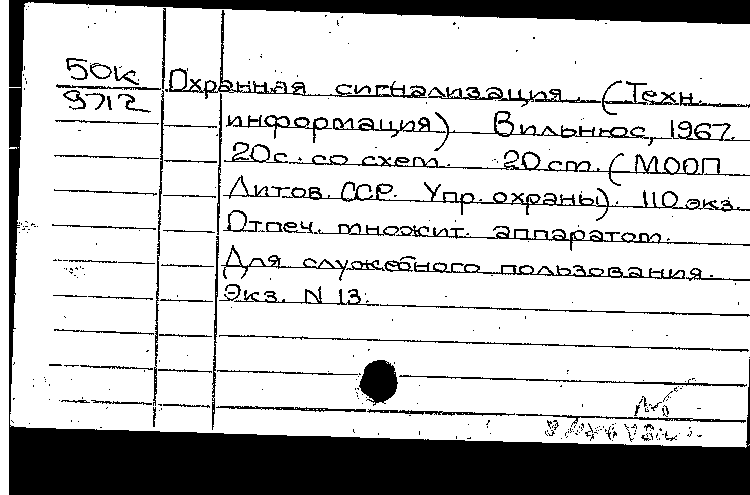 50к
9712
Охранная сигнализация. (Техн.
информация). Вильнюс, 1967.
20с. со схем. 20 см. (МООП
Литов. ССР. Упр. охраны). 110 экз.
Отпеч. множит. аппаратом.
Для служебного пользования.
Экз. N 13.